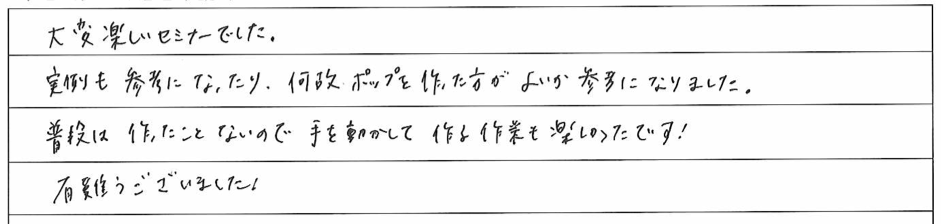 大変楽しいセミナーでした。
実例も参考になったり、何故ポップを作った方がよいか参考になりました。
普段は作ったことないので手を動かして作る作業も楽しかったです!
有難うございました!